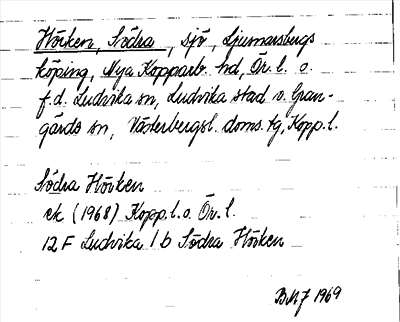 Hörken, Södra, sjö, Ljusnarsbergs
köping, Nya Kopparb. hd, Ör. l. o.
f.d. Ludvika sn, Ludvika stad o. Gran-
gärds sn, Västerbergsl. doms. tg, Kopp. l.
Södra Hörken
ek (1968) Kopp. l. o. Ör. l.
12 F Ludvika 1 b Södra Hörken
1969